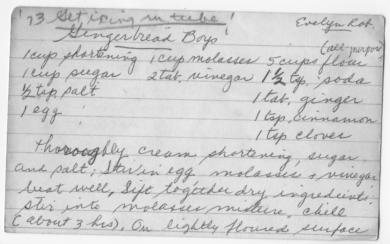 '73 Get icing in tube!
Evelyn Rob.
Gingerbread Boys
(all-purpose)
1 cup shortening 1 cup molasses 5 cups flour
1 cup sugar 2 tab. vinegar 1 1/2 tsp. soda
1/2 tsp salt 1 tab. ginger
1 egg 1 tsp. cinnamon
1 tsp cloves
Thoroughly cream shortening, sugar
and salt; Stir in egg molasses & vinegar
beat well, Sift together dry ingredients,
stir into molasses mixture, chill
(about 3 hrs). On lightly floured surface